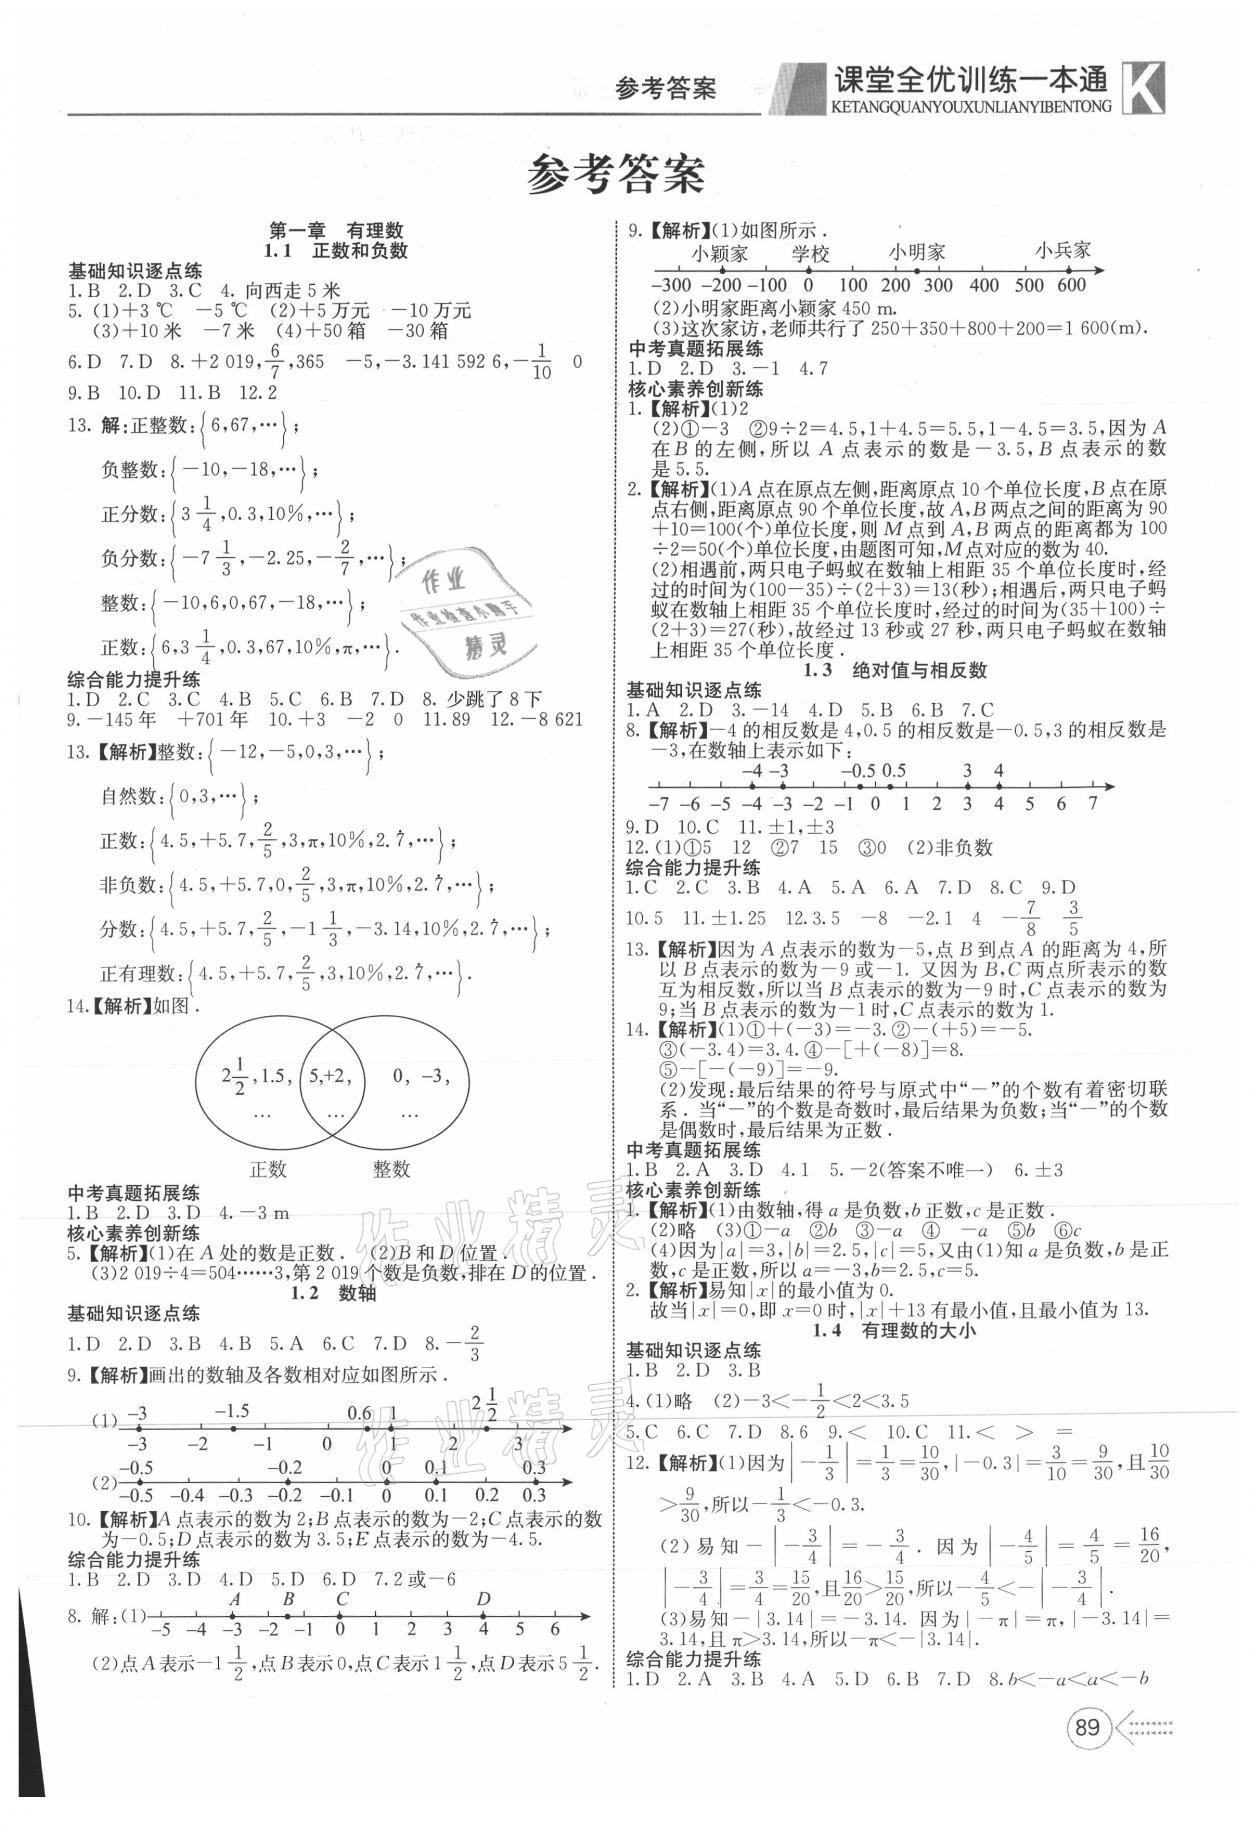 参考答案
课堂全优训练一本通
KETANGQUANYOUXUNLIANYIBENTONG
K
参考答案
第一章 有理数
1.1 正数和负数
基础知识逐点练
1.B 2.D 3.C 4. 向西走5米
5. (1)+3 ℃ −5 ℃ (2)+5万元 −10万元
(3)+10米 −7米 (4)+50箱 −30箱
6.D 7.D 8.+2 019,6/7,365 −5,−3.141 592 6,−1/10 0
9.B 10.D 11.B 12.2
13. 解:正整数:{6,67,⋯};
负整数:{−10,−18,⋯};
正分数:{3 1/4,0.3,10%,⋯};
负分数:{−7 1/3,−2.25,−2/7,⋯};
整数:{−10,6,0,67,−18,⋯};
正数:{6,3 1/4,0.3,67,10%,π,⋯}.
综合能力提升练
1.D 2.C 3.C 4.B 5.C 6.B 7.D 8. 少跳了8下
9.−145年 +701年 10.+3 −2 0 11.89 12.−8 621
13.【解析】整数:{−12,−5,0,3,⋯};
自然数:{0,3,⋯};
正数:{4.5,+5.7,2/5,3,π,10%,2.7̇,⋯};
非负数:{4.5,+5.7,0,2/5,3,π,10%,2.7̇,⋯};
分数:{4.5,+5.7,2/5,−1 1/3,−3.14,10%,2.7̇,⋯};
正有理数:{4.5,+5.7,2/5,3,10%,2.7̇,⋯}.
14.【解析】如图.
2 1/2,1.5, 5,+2, 0, −3,
… … …
正数 整数
中考真题拓展练
1.B 2.D 3.D 4.−3 m
核心素养创新练
5.【解析】(1)在A处的数是正数. (2)B和D位置.
(3)2 019÷4=504……3,第2 019个数是负数,排在D的位置.
1.2 数轴
基础知识逐点练
1.D 2.D 3.B 4.B 5.A 6.C 7.D 8.−2/3
9.【解析】画出的数轴及各数相对应如图所示.
(1) −3 −1.5 0.6 1 2 1/2
−3 −2 −1 0 1 2 3
(2) −0.5 −0.2 0 0.1 0.3
−0.5 −0.4 −0.3 −0.2 −0.1 0 0.1 0.2 0.3
10.【解析】A点表示的数为2;B点表示的数为−2;C点表示的数
为−0.5;D点表示的数为3.5;E点表示的数为−4.5.
综合能力提升练
1.B 2.D 3.D 4.D 5.D 6.D 7.2或−6
8. 解:(1) A B C D
−5 −4 −3 −2 −1 0 1 2 3 4 5 6
(2)点A表示−1 1/2,点B表示0,点C表示1 1/2,点D表示5 1/2.
9.【解析】(1)如图所示.
小颖家 学校 小明家 小兵家
−300 −200 −100 0 100 200 300 400 500 600
(2)小明家距离小颖家450 m.
(3)这次家访,老师共行了250+350+800+200=1 600(m).
中考真题拓展练
1.D 2.D 3.−1 4.7
核心素养创新练
1.【解析】(1)2
(2)①−3 ②9÷2=4.5,1+4.5=5.5,1−4.5=3.5,因为A
在B的左侧,所以A点表示的数是−3.5,B点表示的数
是5.5.
2.【解析】(1)A点在原点左侧,距离原点10个单位长度,B点在原
点右侧,距离原点90个单位长度,故A,B两点之间的距离为90
+10=100(个)单位长度,则M点到A,B两点的距离都为100
÷2=50(个)单位长度,由题图可知,M点对应的数为40.
(2)相遇前,两只电子蚂蚁在数轴上相距35个单位长度时,经
过的时间为(100−35)÷(2+3)=13(秒);相遇后,两只电子蚂
蚁在数轴上相距35个单位长度时,经过的时间为(35+100)÷
(2+3)=27(秒),故经过13秒或27秒,两只电子蚂蚁在数轴
上相距35个单位长度.
1.3 绝对值与相反数
基础知识逐点练
1.A 2.D 3.−14 4.D 5.B 6.B 7.C
8.【解析】−4的相反数是4,0.5的相反数是−0.5,3的相反数是
−3,在数轴上表示如下:
−4 −3 −0.5 0.5 3 4
−7 −6 −5 −4 −3 −2 −1 0 1 2 3 4 5 6 7
9.D 10.C 11.±1,±3
12.(1)①5 12 ②7 15 ③0 (2)非负数
综合能力提升练
1.C 2.C 3.B 4.A 5.A 6.A 7.D 8.C 9.D
10.5 11.±1.25 12.3.5 −8 −2.1 4 −7/8 3/5
13.【解析】因为A点表示的数为−5,点B到点A的距离为4,所
以B点表示的数为−9或−1. 又因为B,C两点所表示的数
互为相反数,所以当B点表示的数为−9时,C点表示的数为
9;当B点表示的数为−1时,C点表示的数为1.
14.【解析】(1)①+(−3)=−3.②−(+5)=−5.
③(−3.4)=3.4.④−[+(−8)]=8.
⑤−[−(−9)]=−9.
(2)发现:最后结果的符号与原式中“−”的个数有着密切联
系. 当“−”的个数是奇数时,最后结果为负数;当“−”的个数
是偶数时,最后结果为正数.
中考真题拓展练
1.B 2.A 3.D 4.1 5.−2(答案不唯一) 6.±3
核心素养创新练
1.【解析】(1)由数轴,得a是负数,b正数,c是正数.
(2)略 (3)①−a ②b ③−a ④ −a ⑤b ⑥c
(4)因为|a|=3,|b|=2.5,|c|=5,又由(1)知a是负数,b是正
数,c是正数,所以a=−3,b=2.5,c=5.
2.【解析】易知|x|的最小值为0.
故当|x|=0,即x=0时,|x|+13有最小值,且最小值为13.
1.4 有理数的大小
基础知识逐点练
1.B 2.D 3.B
4.(1)略 (2)−3<−1/2<2<3.5
5.C 6.C 7.D 8.6 9.< 10.C 11.< > =
12.【解析】(1)因为|−1/3|=1/3=10/30,|−0.3|=3/10=9/30,且10/30
>9/30,所以−1/3<−0.3.
(2)易知−|−3/4|=−3/4. 因为|−4/5|=4/5=16/20,
|−3/4|=3/4=15/20,且16/20>15/20,所以−4/5<−|−3/4|.
(3)易知−|3.14|=−3.14. 因为|−π|=π,|−3.14|=
3.14,且π>3.14,所以−π<−|3.14|.
综合能力提升练
1.D 2.A 3.B 4.A 5.D 6.B 7.D 8.b<−a<a<−b
89
作业
作业检查小助手
精灵
作业精灵
作业精灵